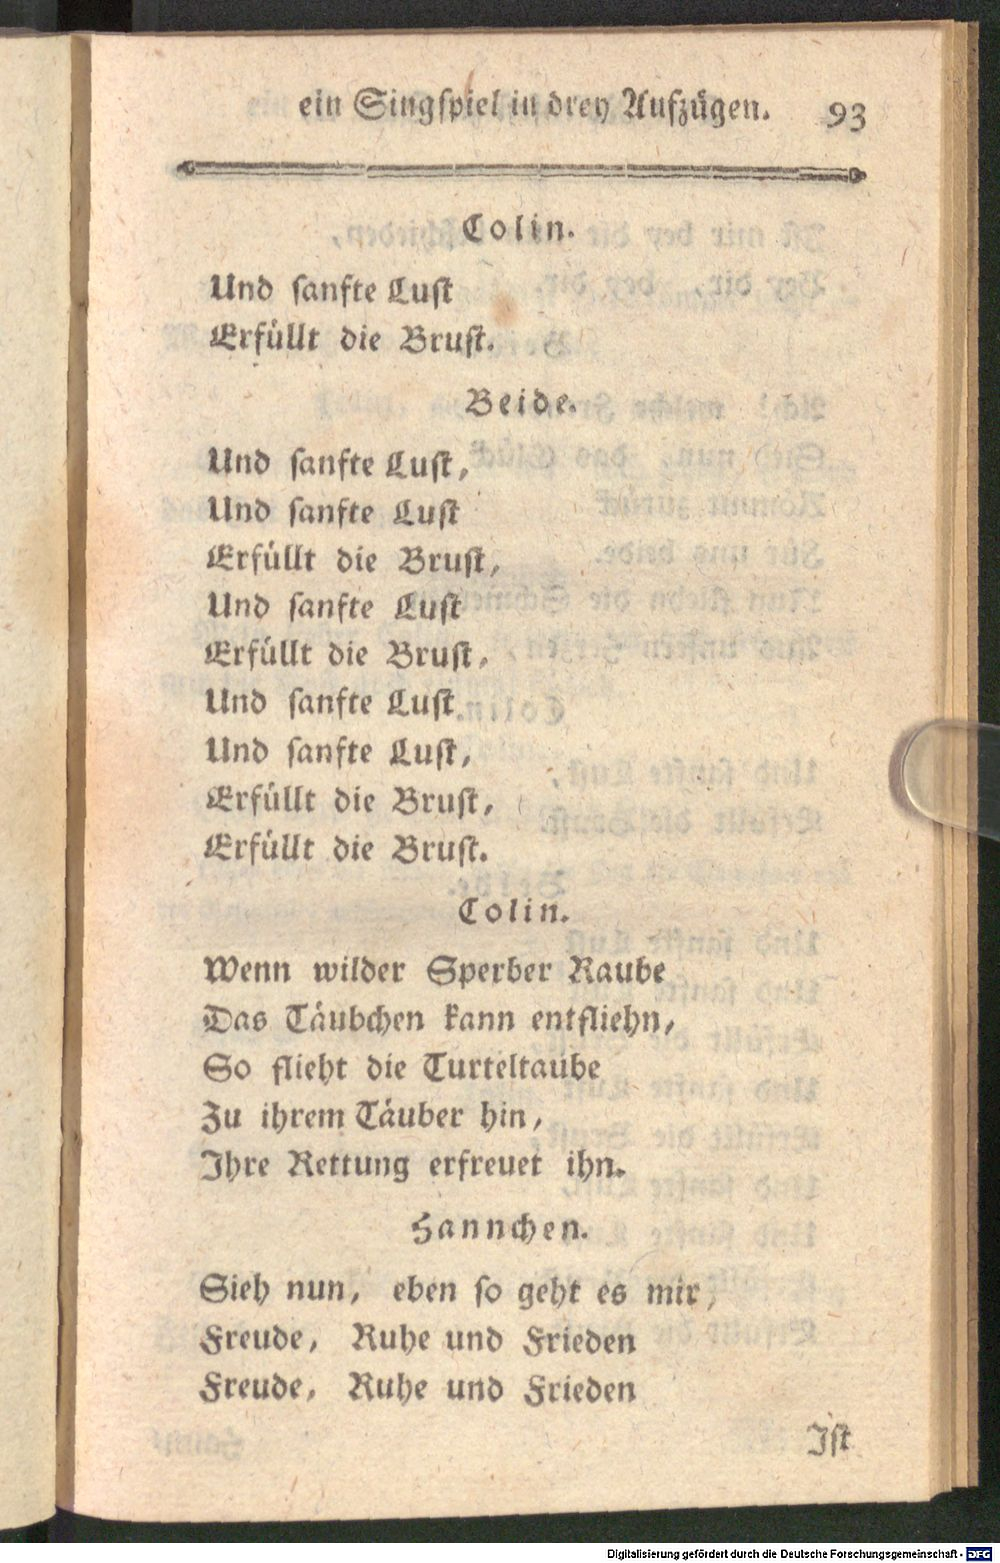 ein Singſpiel in drey Aufzügen. 93
Colin.
Und ſanfte Luſt
Erfüllt die Bruſt.
Beide.
Und ſanfte Luſt,
Und ſanfte Luſt
Erfüllt die Bruſt,
Und ſanfte Luſt
Erfüllt die Bruſt,
Und ſanfte Luſt
Und ſanfte Luſt,
Erfüllt die Bruſt,
Erfüllt die Bruſt.
Colin.
Wenn wilder Sperber Raube
Das Täubchen kann entfliehn,
So flieht die Turteltaube
Zu ihrem Täuber hin,
Ihre Rettung erfreuet ihn.
Hannchen.
Sieh nun, eben ſo geht es mir,
Freude, Ruhe und Frieden
Freude, Ruhe und Frieden
Iſt
Digitalisierung gefördert durch die Deutsche Forschungsgemeinschaft - DFG